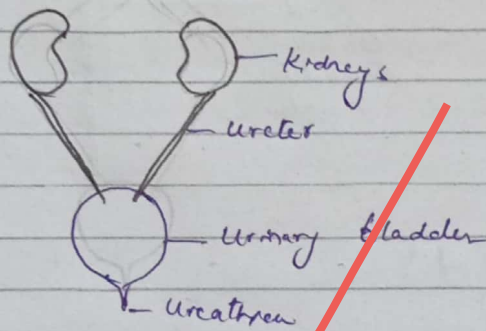 Kidneys
Ureter
Urinary bladder
Ureathrea